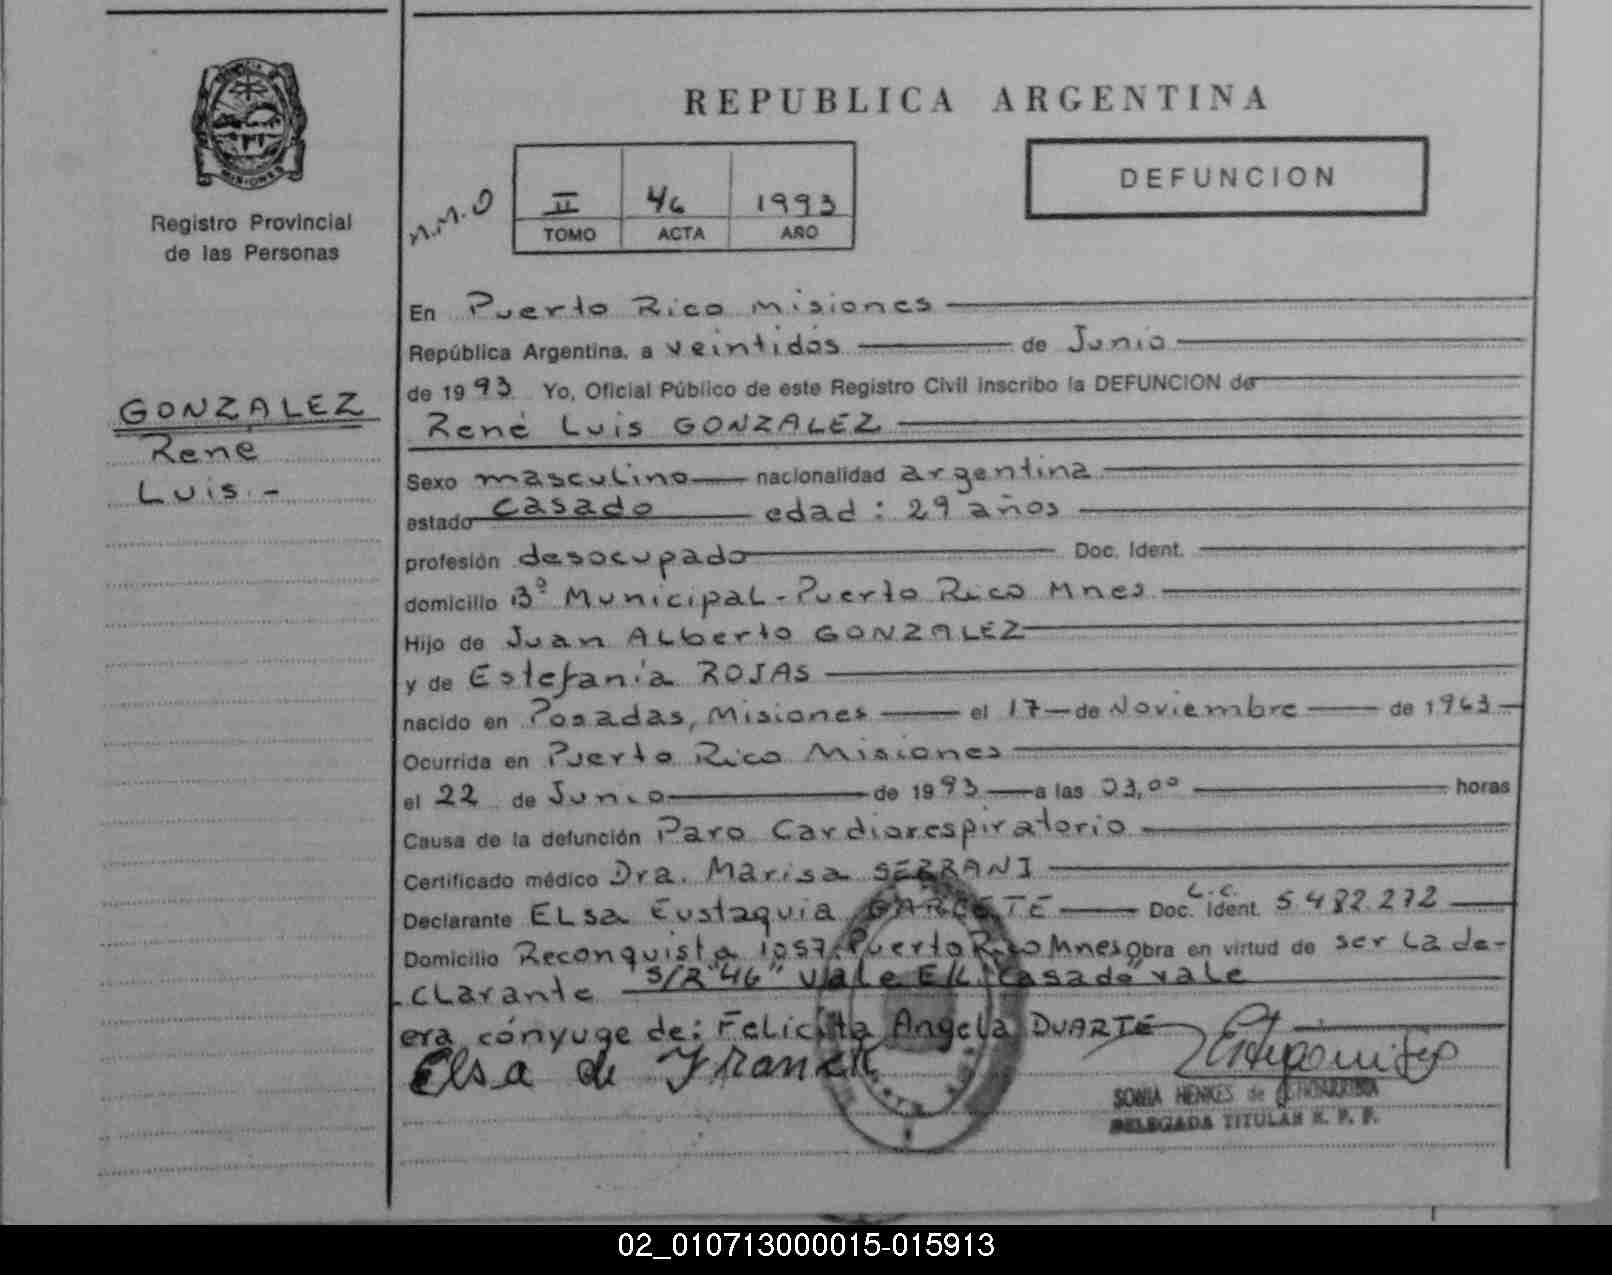 PROVINCIA DE
MISIONES
Registro Provincial
de las Personas
GONZALEZ
René
Luis.-
REPUBLICA ARGENTINA
N.M.O
II 46 1993
TOMO ACTA AÑO
DEFUNCION
En Puerto Rico Misiones
República Argentina, a veintidós de Junio
de 1993 Yo, Oficial Público de este Registro Civil inscribo la DEFUNCION de
René Luis GONZALEZ
Sexo masculino nacionalidad argentina
estado casado edad: 29 años
profesión desocupado Doc. Ident.
domicilio Bº Municipal - Puerto Rico Mnes
Hijo de Juan Alberto GONZALEZ
y de Estefanía ROJAS
nacido en Posadas, Misiones el 17 de Noviembre de 1963
Ocurrida en Puerto Rico Misiones
el 22 de Junio de 1993 a las 03,00 horas
Causa de la defunción Paro Cardiorespiratorio
Certificado médico Dra. Marisa SERRANI
Declarante Elsa Eustaquia GARCETE Doc. Ident. L.C. 5.482.272
Domicilio Reconquista 1057. Puerto Rico Mnes Obra en virtud de ser la de-
clarante S/R "46" Vale E/L "casado" vale
era cónyuge de: Felicita Angela DUARTE
Elsa de Franck
SONIA HENKES de
DELEGADA TITULAR R. P. P.
02_010713000015-015913